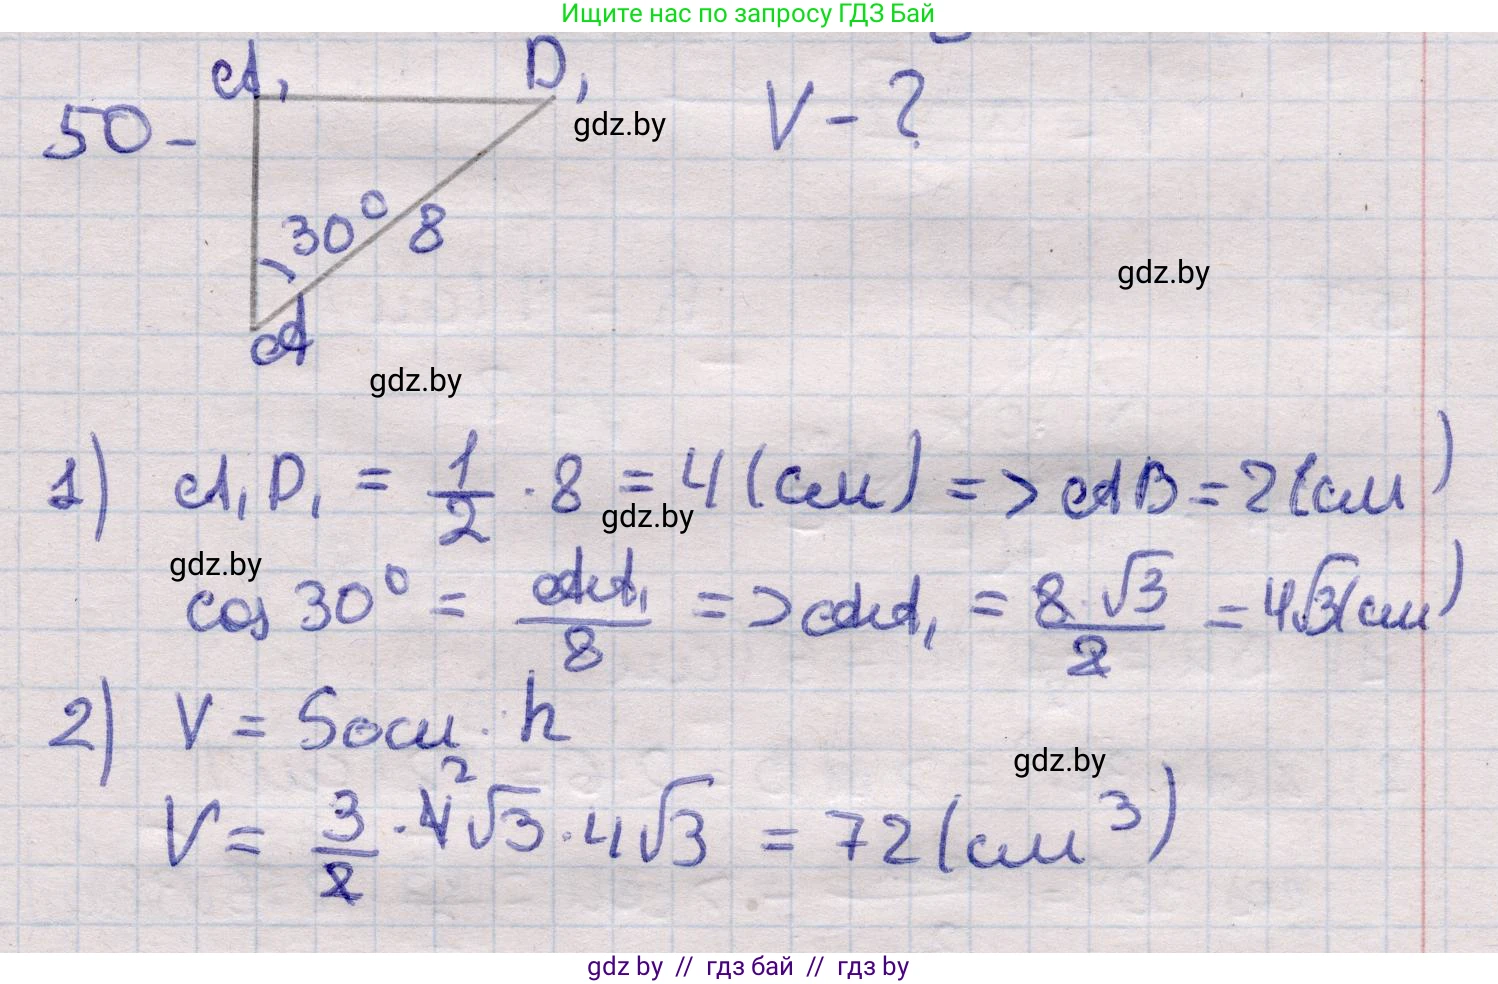 Ищите нас по запросу ГДЗ Бай
A₁ D₁
50 - gdz.by V - ?
30° 8
gdz.by
A
gdz.by
1) A₁D₁ = 1/2 · 8 = 4 (см) => AB = 2 (см)
gdz.by
gdz.by
cos 30° = AA₁/8 => AA₁ = 8·√3/2 = 4√3 (см)
2) V = Sосн · h
gdz.by
V = 3/2 · 4² √3 · 4√3 = 72 (см³)
gdz by // гдз бай // гдз by